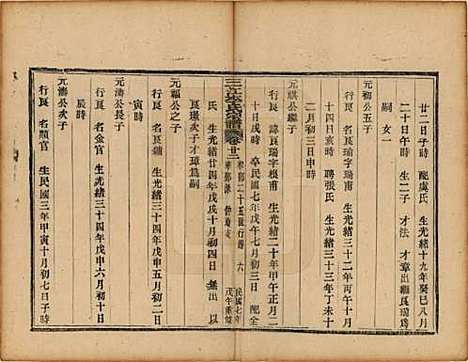 廿二日子時 配虞氏 生光緒十九年癸巳八月
二十日午時 生二子 才法 才章出繼良瑗為
嗣 女一
元福公五子
行良 名瑜字瑞甫 生光緒三十二年丙午十月
十四日亥時 聘張氏 生光緒三十三年丁未十
二月初三日申時
元祺公繼子
行良 諱良瑗字根甫 生光緒二十年甲午正月二
十日戌時 卒民國七年戊午七月初三日 配全
氏 生光緒廿四年戊戌十月初四日 無出 以
良璟次子才璋為嗣
民國七年
戊午重修
元福公之子
行良 名 生光緒三十四年戊申五月初二日
寅時
元濤公次子
行良 名金官 生光緒三十四年戊申六月初十日
辰時
元濤公三子
行良 名類官 生民國三年甲寅十月初七日子時